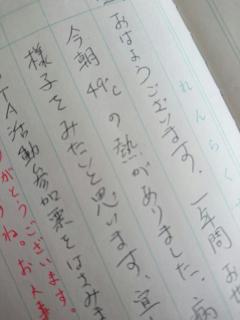 れんらく
おはようございます。一年間お世
今朝49℃の熱がありました。病
様子をみたいと思います。宜
TA活動参加票をはさみま
がとうございます。
ね。お人